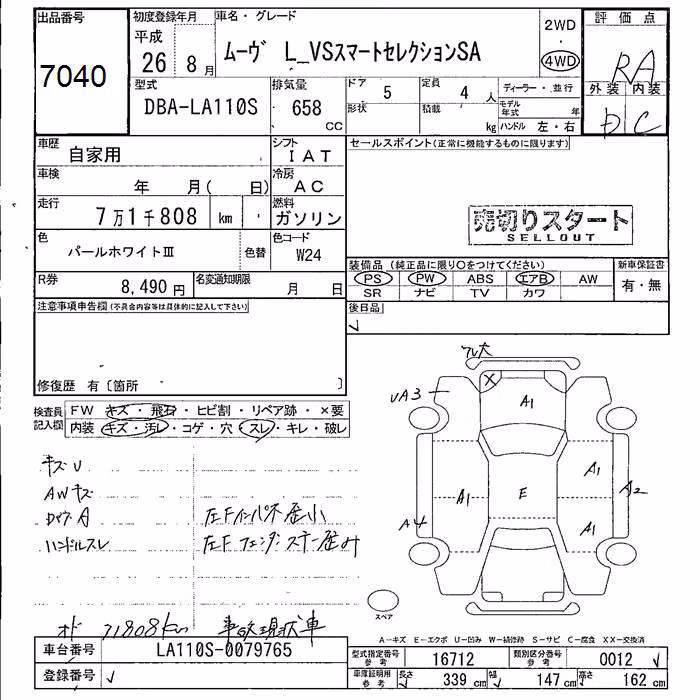 出品番号
7040
初度登録年月
平成
26 8月
車名・グレード
ムーヴ L_VSスマートセレクションSA
2WD
・
4WD
評価点
RA
外装 内装
D C
型式
DBA-LA110S
排気量
658
CC
ドア
5
形状
定員
4 人
積載
kg
ディーラー・並行
モデル年式 年
ハンドル 左・右
車歴
自家用
シフト
IAT
セールスポイント(正常に機能するものに限ります)
車検
年 月( 日)
冷房
AC
走行
7万1千808 km
燃料
ガソリン
売切りスタート
SELLOUT
色
パールホワイトⅢ
色替
色コード
W24
装備品(純正品に限り○をつけてください)
新車保証書
PS PW ABS エアB AW
有・無
SR ナビ TV カワ
R券
8,490円
名変通知期限
月 日
後日品
注意事項申告欄(不具合内容等は具体的に記入して下さい)
修復歴 有〔箇所 〕
検査員記入欄
FW キズ・飛石・ヒビ割・リペア跡・×要
内装 キズ・汚レ・コゲ・穴・スレ・キレ・破レ
キズU
AWキズ
ハンドルスレ
左Fインパネ歪小
左Fフェンダステー歪み
オド 71808km 事故現状車
UA3
A1
A1
A1
E
A2
A4
A1
スペア
A-キズ E-エクボ U-凹み W-補修跡 S-サビ C-腐食 XX-交換済
車台番号
LA110S-0079765
登録番号
型式指定番号
参考
16712
類別区分番号
参考
0012
車庫証明用
参考
長さ 339 cm
幅 147 cm
高さ 162 cm